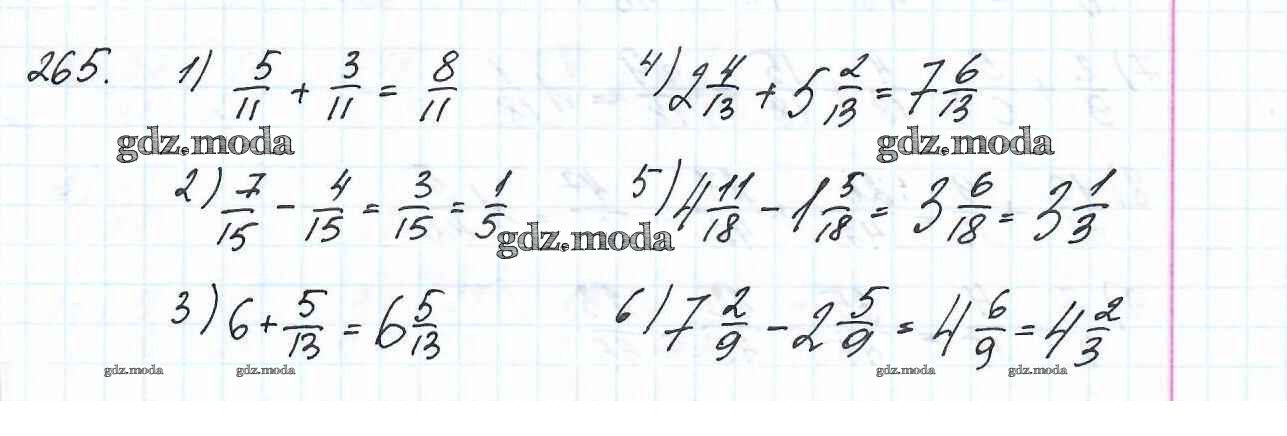 265. 1) 5/11 + 3/11 = 8/11
4) 2 4/13 + 5 2/13 = 7 6/13
gdz.moda gdz.moda
2) 7/15 - 4/15 = 3/15 = 1/5
5) 4 11/18 - 1 5/18 = 3 6/18 = 3 1/3
gdz.moda
3) 6 + 5/13 = 6 5/13
6) 7 2/9 - 2 5/9 = 4 6/9 = 4 2/3
gdz.moda gdz.moda gdz.moda gdz.moda